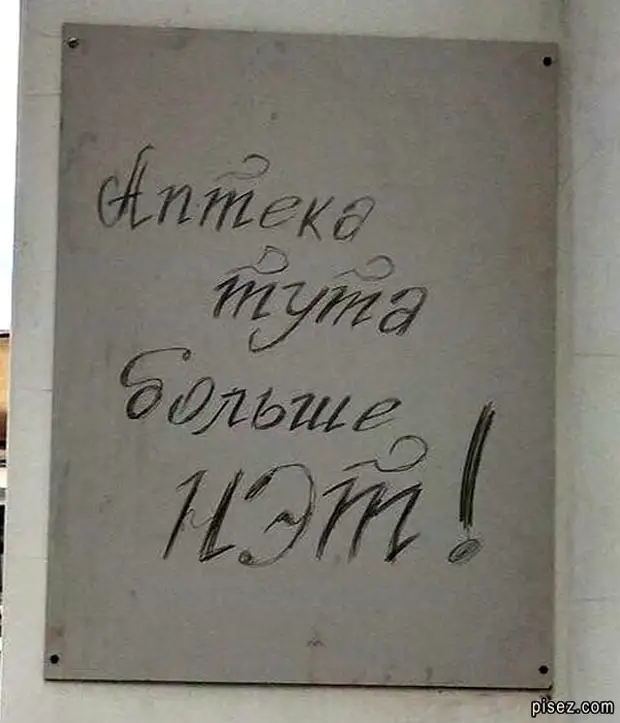 Аптека
тута
больше
нэт!
pisez.com